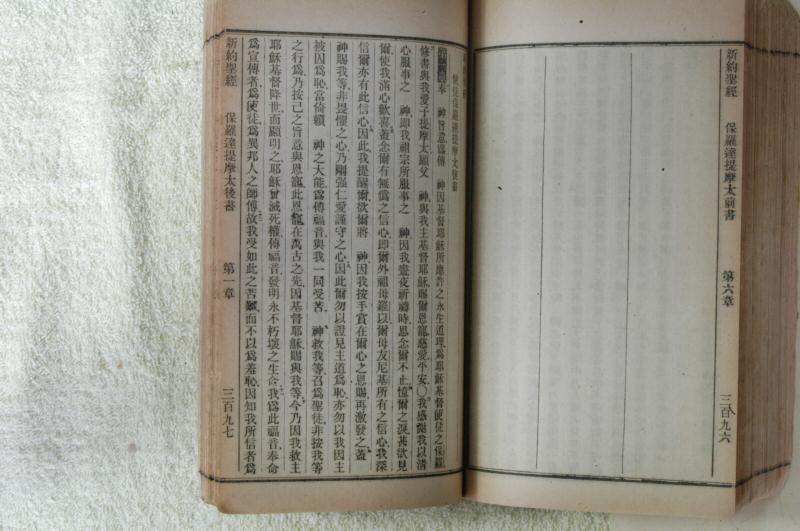 新約聖經　保羅達提摩太前書　第六章　三百九六
使徒保羅達提摩太後書
奉　神旨意爲傳　神因基督耶穌所應許之永生道理爲耶穌基督使徒之保羅
修書與我愛子提摩太願父　神與我主基督耶穌賜爾恩寵慈愛平安〇我感謝我以清
心服事之　神卽我祖宗所服事之　神因我晝夜祈禱時恩念爾不止憶爾之淚甚欲見
爾使我滿心歡喜蓋念爾有無僞之信心卽爾外祖母羅以爾母友尼基所有之信心我深
信爾亦有此信心因此我提醒爾欲爾將　神因我按手賞在爾心之恩賜再激發之蓋
神賜我等非畏懼之心乃剛强仁愛謹守之心因此爾勿以證見主道爲恥亦勿以我因主
被囚爲恥當倚賴　神之大能爲傳福音與我一同受苦　神救我等召爲聖徒非按我等
之行爲乃按己之旨意與恩寵此恩寵在萬古之先因基督耶穌賜與我等今乃因我救主
耶穌基督降世而顯明之耶穌曾滅死權傳福音發明永不朽壞之生命我爲此福音奉命
爲宣傳者爲使徒爲異邦人之師傅故我受如此之苦難而不以爲羞恥因知我所信者爲
新約聖經　保羅達提摩太後書　第一章　三百九七